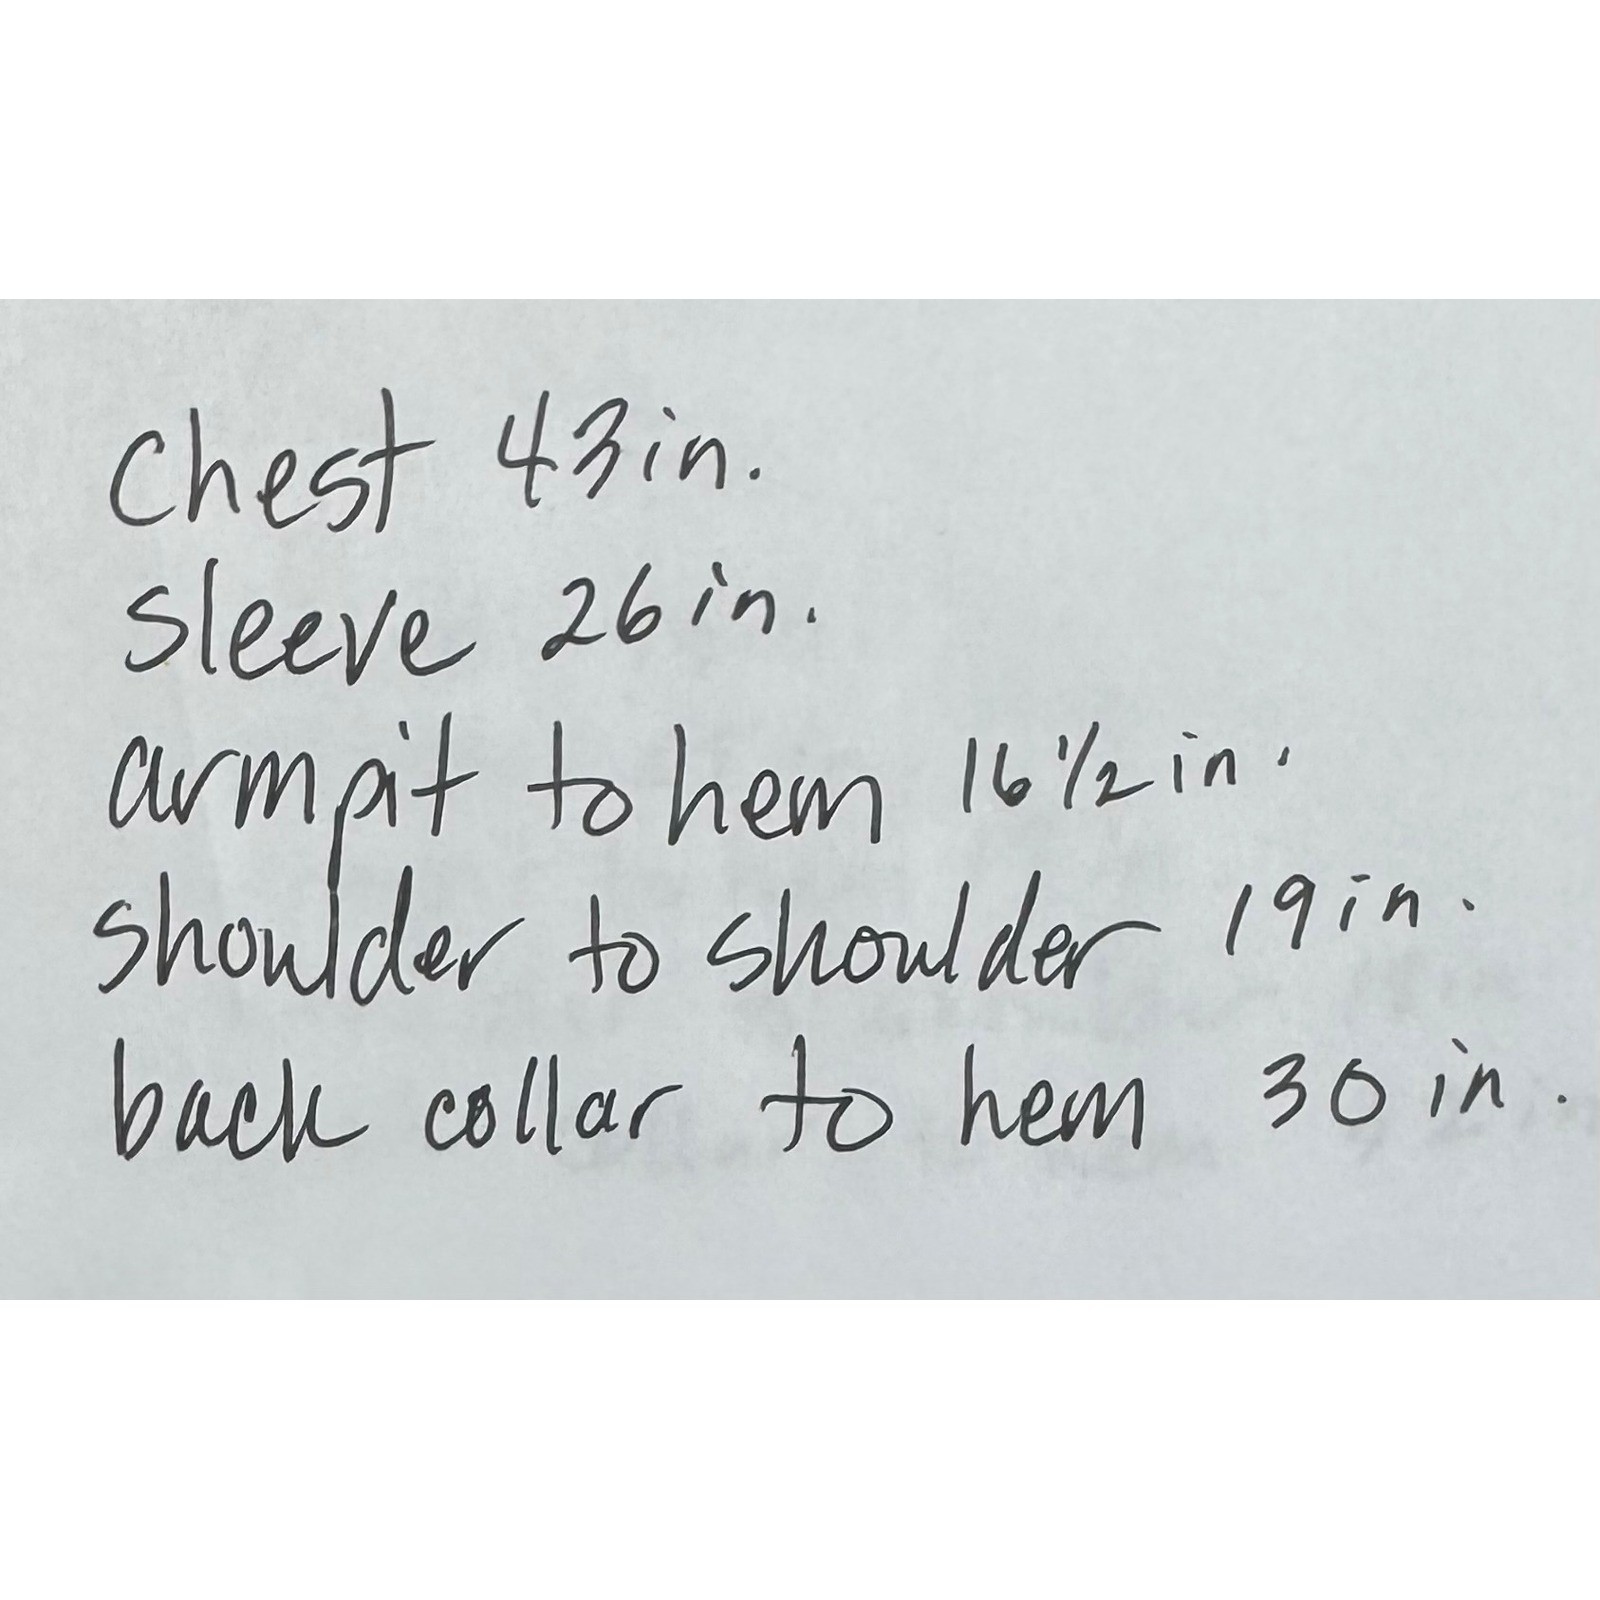 Chest 43in.
sleeve 26in.
armpit to hem 16 1/2 in.
shoulder to shoulder 19in.
back collar to hem 30 in.